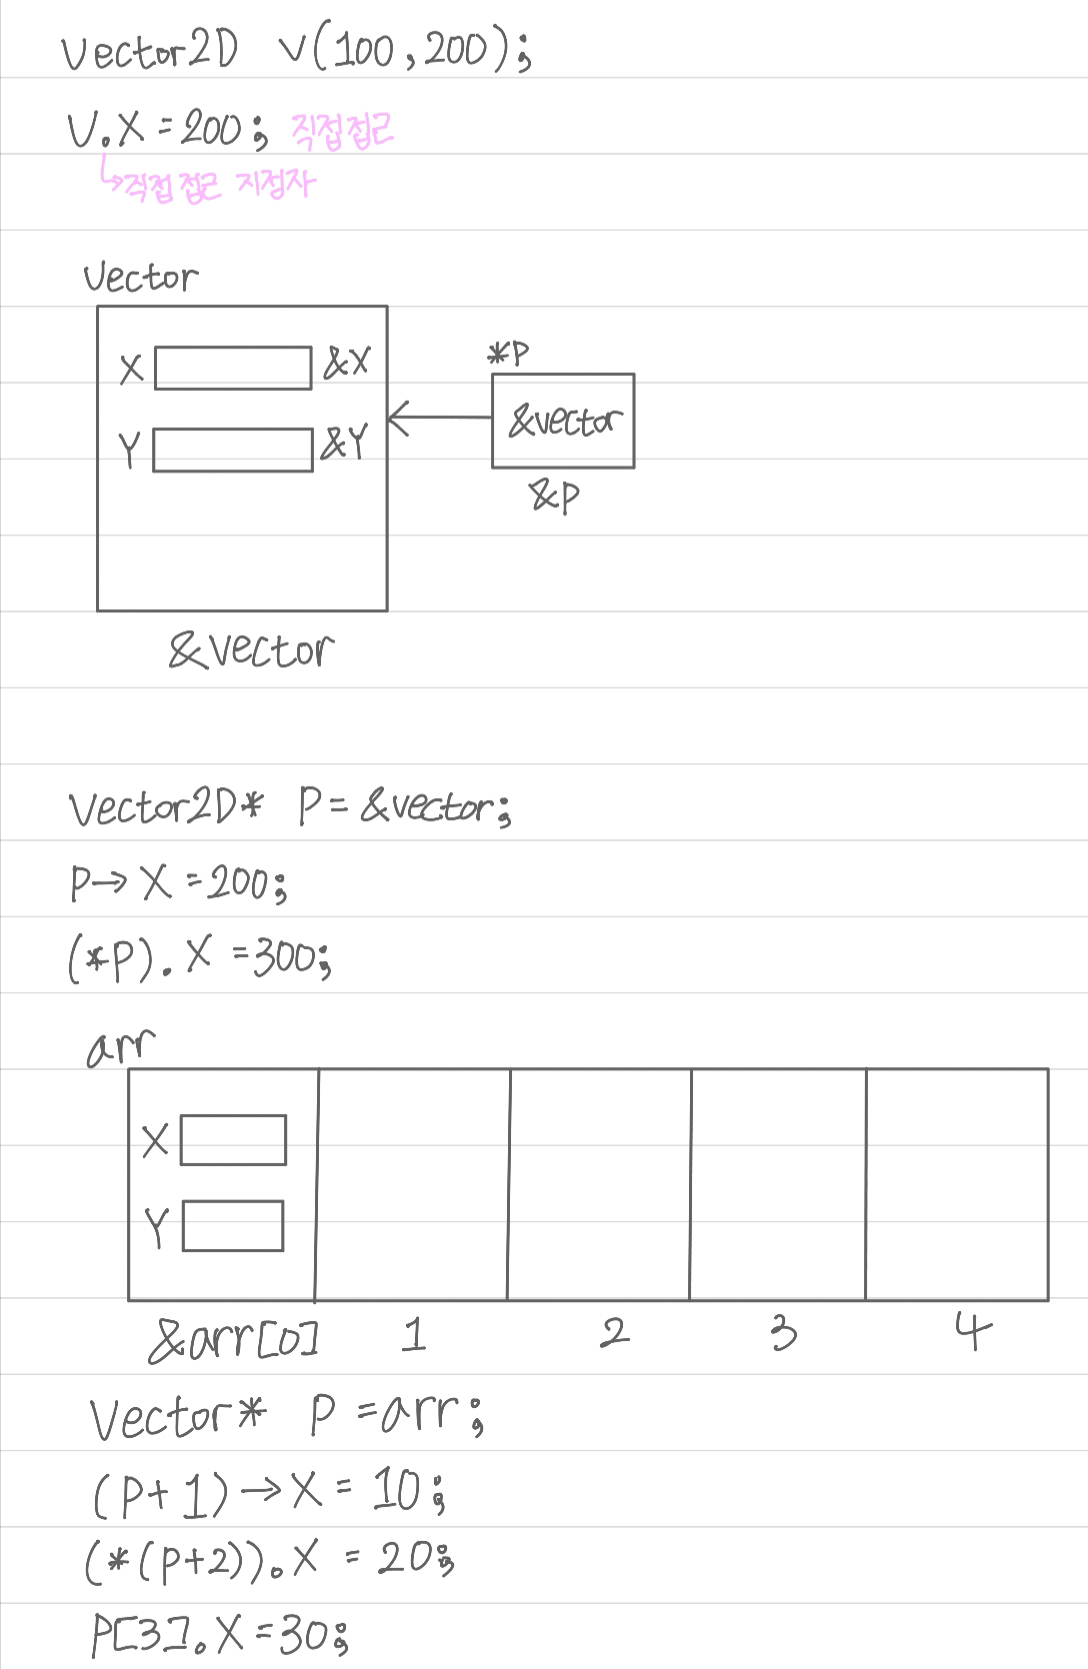 Vector2D v(100,200);
V.X=200; 직접접근
↳직접 접근 지정자
Vector
X &X
Y &Y
*P
&vector
&P
&vector
Vector2D* P=&vector;
P→X=200;
(*P).X=300;
arr
X
Y
&arr[0] 1 2 3 4
Vector* P=arr;
(P+1)→X=10;
(*(P+2)).X=20;
P[3].X=30;